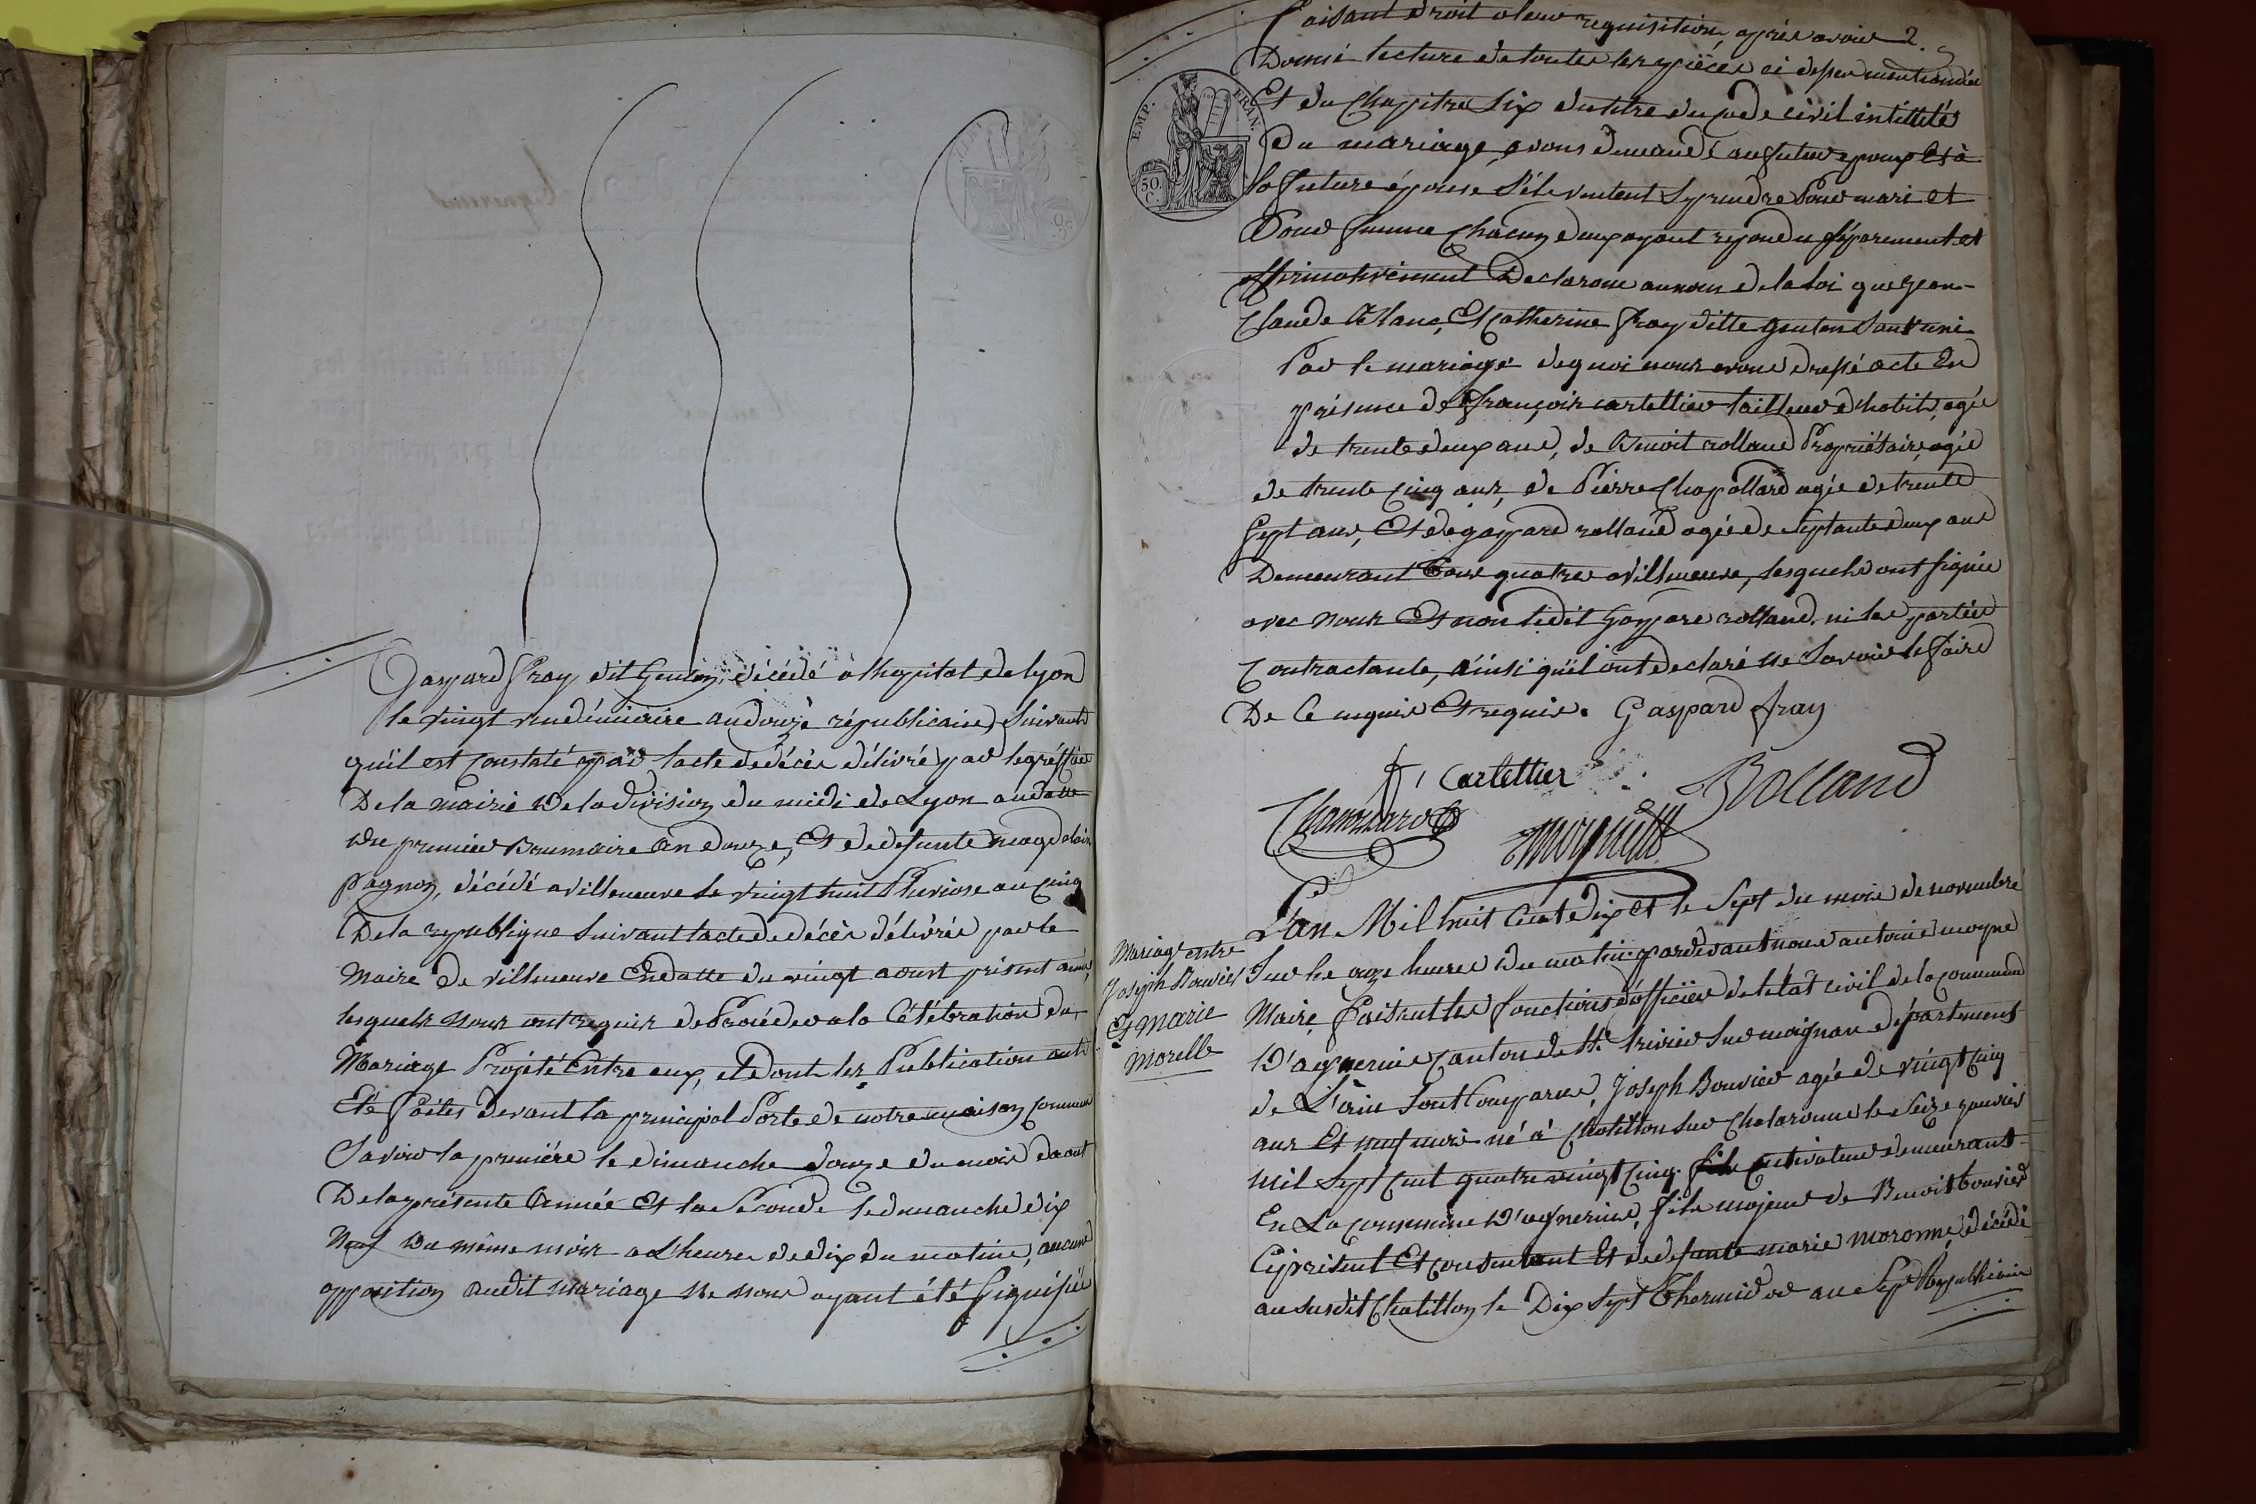 Gaspard Fray dit Genton, décédé a l'hopital de lyon
le vingt vendémiaire an douze républicaine, Suivant
qu'il est Constaté par l'acte de décès délivré par le gréffier
De la mairie De la division du midi de Lyon au datte
du premier Brumaire an douze, Et de defunte magdelaine
pagnon, décédé a villeneuve le vingt huit Pluviose an cinq
De la republique Suivant l'acte de décès délivrée par le
Maire de villeneuve Endatte du vingt aoust présent année
lesquels nous ont requis de Procéder a la Célébration du
Mariage Projété Entre eux, et dont les Publication ont
Eté faites devant la principal Porte de notre maison commune
Savoir la première le dimanche douze du mois daout
De la présente Année Et la Seconde le dimanche dix
Neuf Du même mois a l'heure de dix du matine, aucune
opposition audit mariage ne nous ayant été Signifiée
2.
faisant droit a leur requisition après avoir
Donné lecture de toutes les pièces ci dessus mentionnée
Et du Chapitre Six du titre du code civil intittulés
Du mariage, avons demandé au futur epoux Et à
la future épouse S'ils veulent Se prendre Pour mari et
Pour femme Chacun d'eux ayant repondu séparement et
affirmativement Declarons au nom de la Loi que Jean
Claude Blanc, Et Catherine fray ditte genton Sont unis
Par le mariage de quoi nous avons dressé acte En
présence de françois cartellier tailleur d'habits, agée
de trente deux ans, de Benoit rolland Propriétaire, agée
de trente Cinq ans, de Pierre Chapollard agée de trente
Sept ans, Et de gaspard rolland agée de Septante deux ans
Demeurant Tous quatre a villeneuve, lesquels ont signée
avec nous Et non ledit Gaspard rolland, ni les parties
Contractante, ainsi qu'il ont declaré ne Savoir le faire
De Ce enquis Et requis. Gaspard fray
f, cartellier
Rolland
Mariage entre
Joseph Bouvier
Et Marie
Morelle
L'an Mil huit Cent dix et le Sept du mois de novembre
Sur les onze heures du matin pardevant nous antoine moyne
Maire faisant les fonctions d'officier de l'etat civil de la commune
D'aynerins Canton de St. trivier Sur moignans département
de L'ain Sont Comparus, Joseph Bouvier agée de vingt Cinq
ans Et neuf mois né à Chatillon Sur Chalaronne le Seize janvier
mil Sept Cent quatre vingt Cinq. Cultivateur demeurant
En La commune D'aynerins, fils majeur de Benoit bouvier
Ci présent Et Consentant Et de defunte marie moronne, décédé
au Susdit Chatillon le Dix Sept Thermidor an Sept Républicain